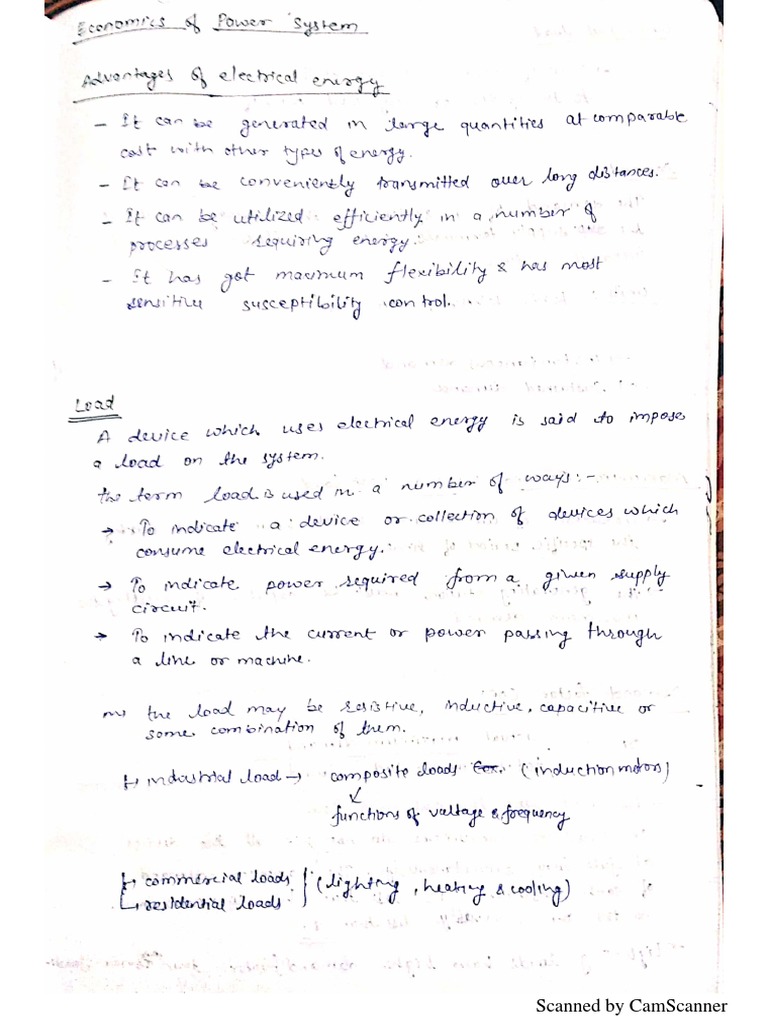 Economics of Power System
Advantages of electrical energy
- It can be generated in large quantities at comparable
cost with other types of energy.
- It can be conveniently transmitted over long distances.
- It can be utilized efficiently in a number of
processes requiring energy.
- It has got maximum flexibility & has most
sensitive susceptibility control.
Load
A device which uses electrical energy is said to impose
a load on the system.
the term load is used in a number of ways:-
→ To indicate a device or collection of devices which
consume electrical energy.
→ To indicate power required from a given supply
circuit.
→ To indicate the current or power passing through
a line or machine.
the load may be resistive, inductive, capacitive or
some combination of them.
→ industrial load → composite loads (induction motors)
functions of voltage & frequency
→ commercial loads } (lighting, heating & cooling)
→ residential loads
Scanned by CamScanner